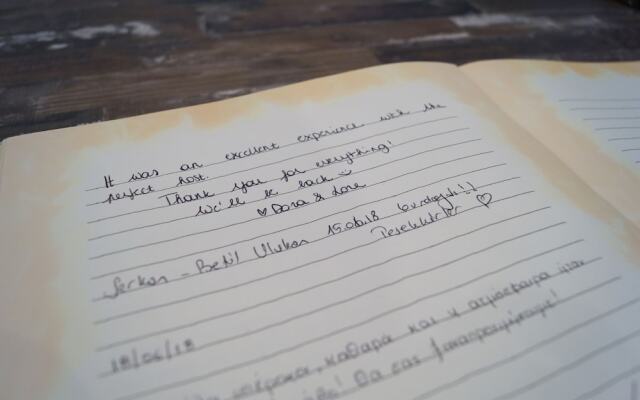 It was an excellent experience with the
perfect host.
Thank you for everything!
We'll be back
Dora & Lore
Serkan - Betil Ulukan 15.06.18 burdaydı!!
Teşekkürler
18/06/18
καθαρά και η ατμόσφαιρα ήταν
Θα σας ξαναπροτιμήσουμε!